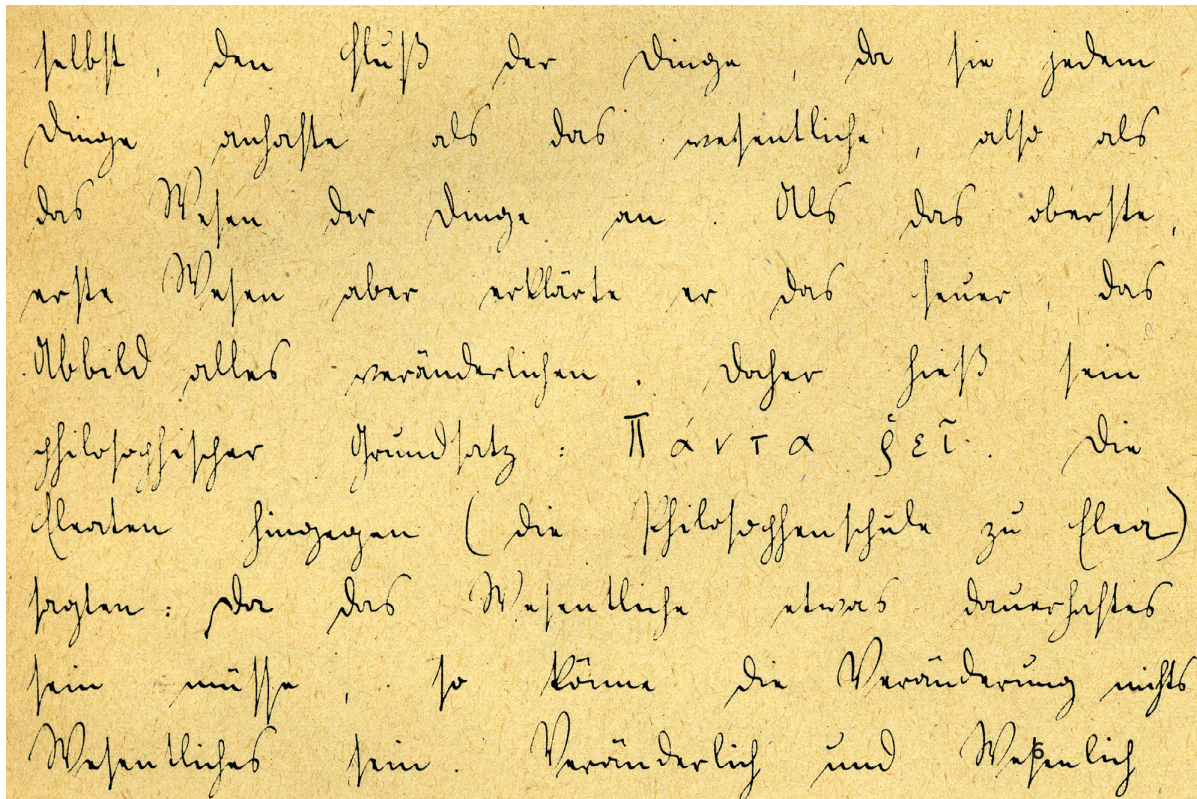 selbst, den Fluß der Dinge, da sie jedem
Dinge anhafte als das wesentliche, also als
das Wesen der Dinge an. Als das oberste,
erste Wesen aber erklärte er das Feuer, das
Abbild alles veränderlichen. Daher hieß sein
philosophischer Grundsatz: Πάντα ῥεῖ. Die
Eleaten hingegen (die Philosophenschule zu Elea)
sagten: Da das Wesentliche etwas dauerhaftes
sein müsse, so könne die Veränderung nichts
Wesentliches sein. Veränderlich und Wesenlich
6